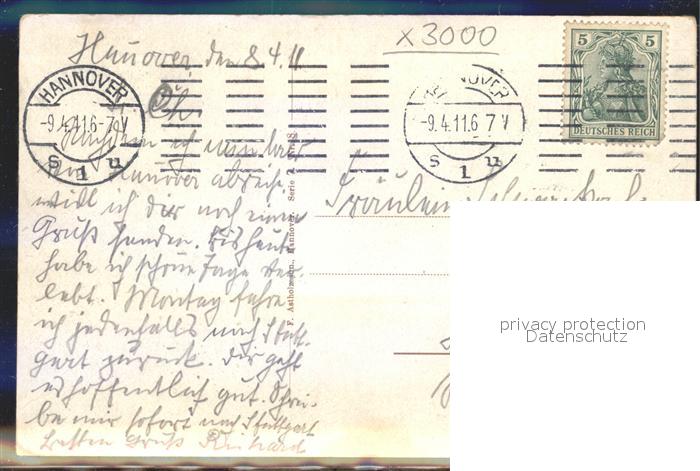 x 3000
Hannover, den 8.4.11
HANNOVER
-9.4.11.6-7V
S 1 u
HANNOVER
-9.4.11.6 7V
S 1 u
5 5
DEUTSCHES REICH
ich nun bald
von Hannover abreise
will ich dir noch einen
Gruß senden. Bis heute
habe ich schöne Tage ver-
lebt. Montag fahre
ich jedenfalls nach Stutt-
gart zurück. Dir geht
es hoffentlich gut. Schrei-
be mir sofort nach Stuttgart
Besten Gruß Reinhard
F. Astholz jun., Hannover. Serie
Fräulein
privacy protection
Datenschutz